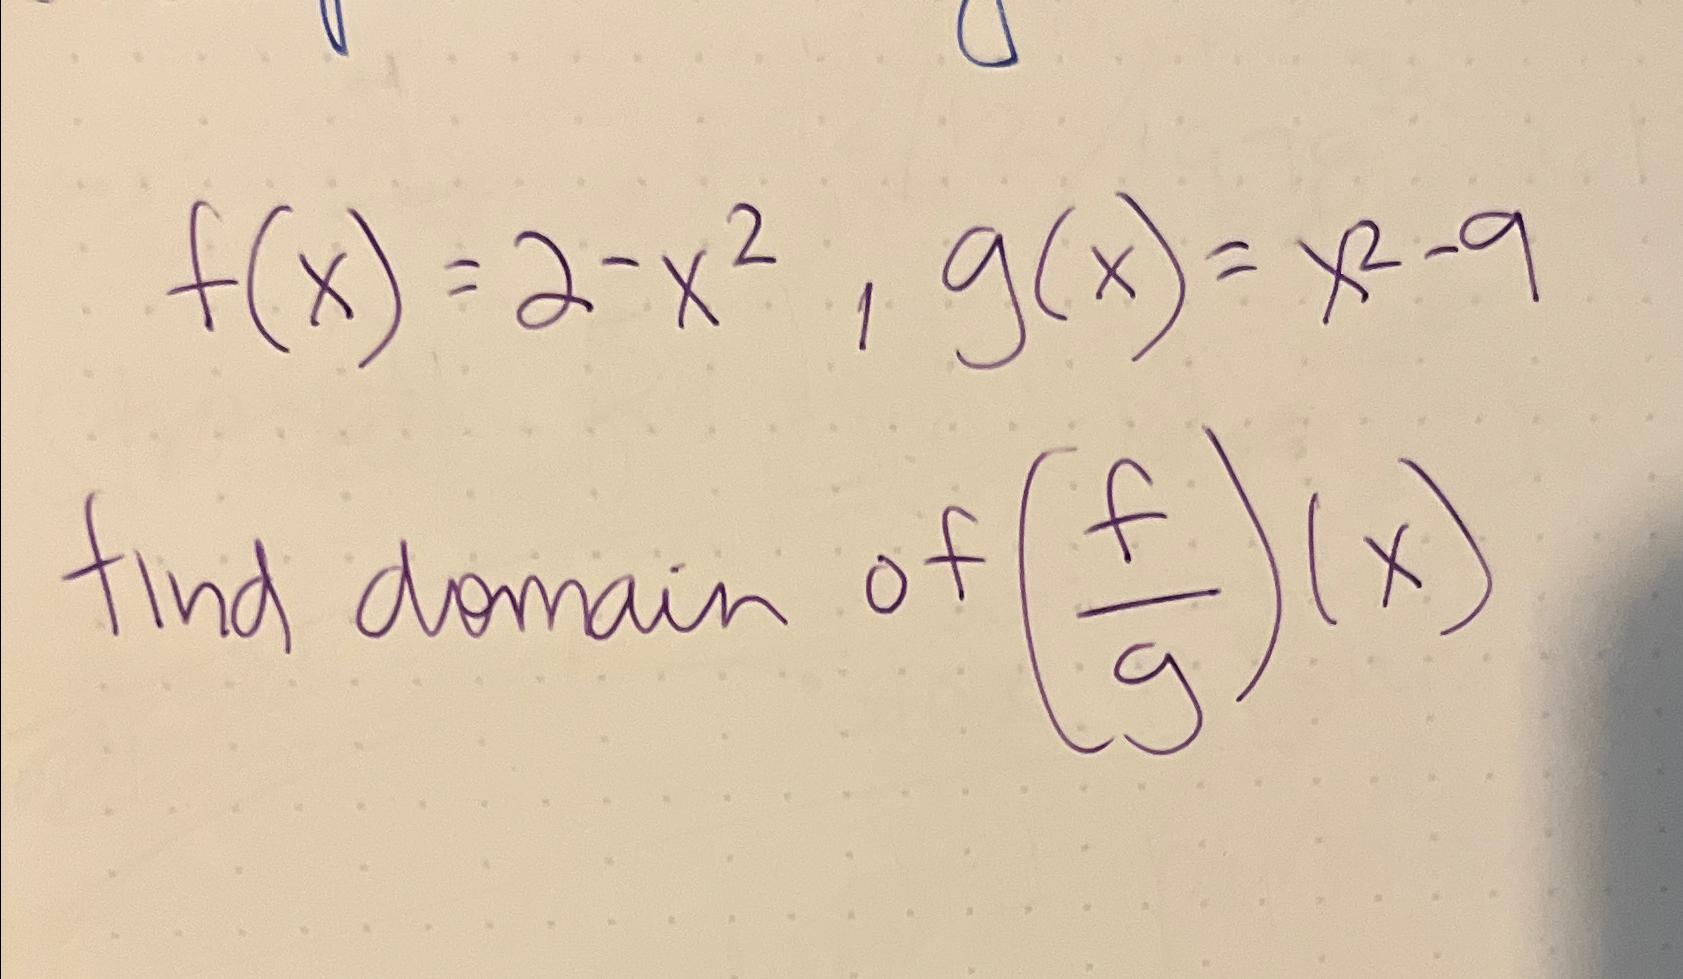 f(x) = 2 - x², g(x) = x² - 9
find domain of (f/g)(x)